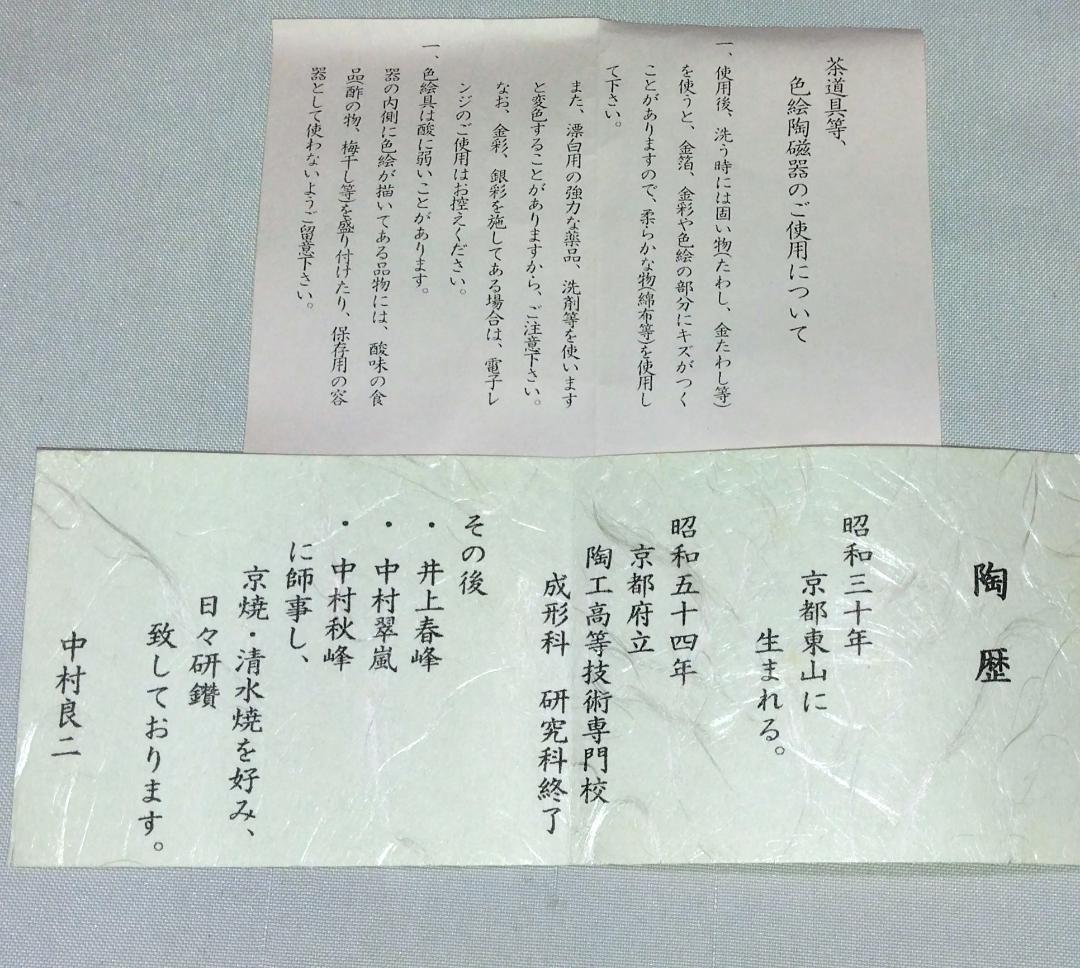 茶道具等、
色絵陶磁器のご使用について
一、使用後、洗う時には固い物(たわし、金たわし等)
を使うと、金箔、金彩や色絵の部分にキズがつく
ことがありますので、柔らかな物(綿布等)を使用し
て下さい。
また、漂白用の強力な薬品、洗剤等を使います
と変色することがありますから、ご注意下さい。
なお、金彩、銀彩を施してある場合は、電子レ
ンジのご使用はお控えください。
一、色絵具は酸に弱いことがあります。
器の内側に色絵が描いてある品物には、酸味の食
品(酢の物、梅干し等)を盛り付けたり、保存用の容
器として使わないようご留意下さい。
陶歴
昭和三十年
京都東山に
生まれる。
昭和五十四年
京都府立
陶工高等技術専門校
成形科 研究科終了
その後
・井上春峰
・中村翠嵐
・中村秋峰
に師事し、
京焼・清水焼を好み、
日々研鑽
致しております。
中村良二